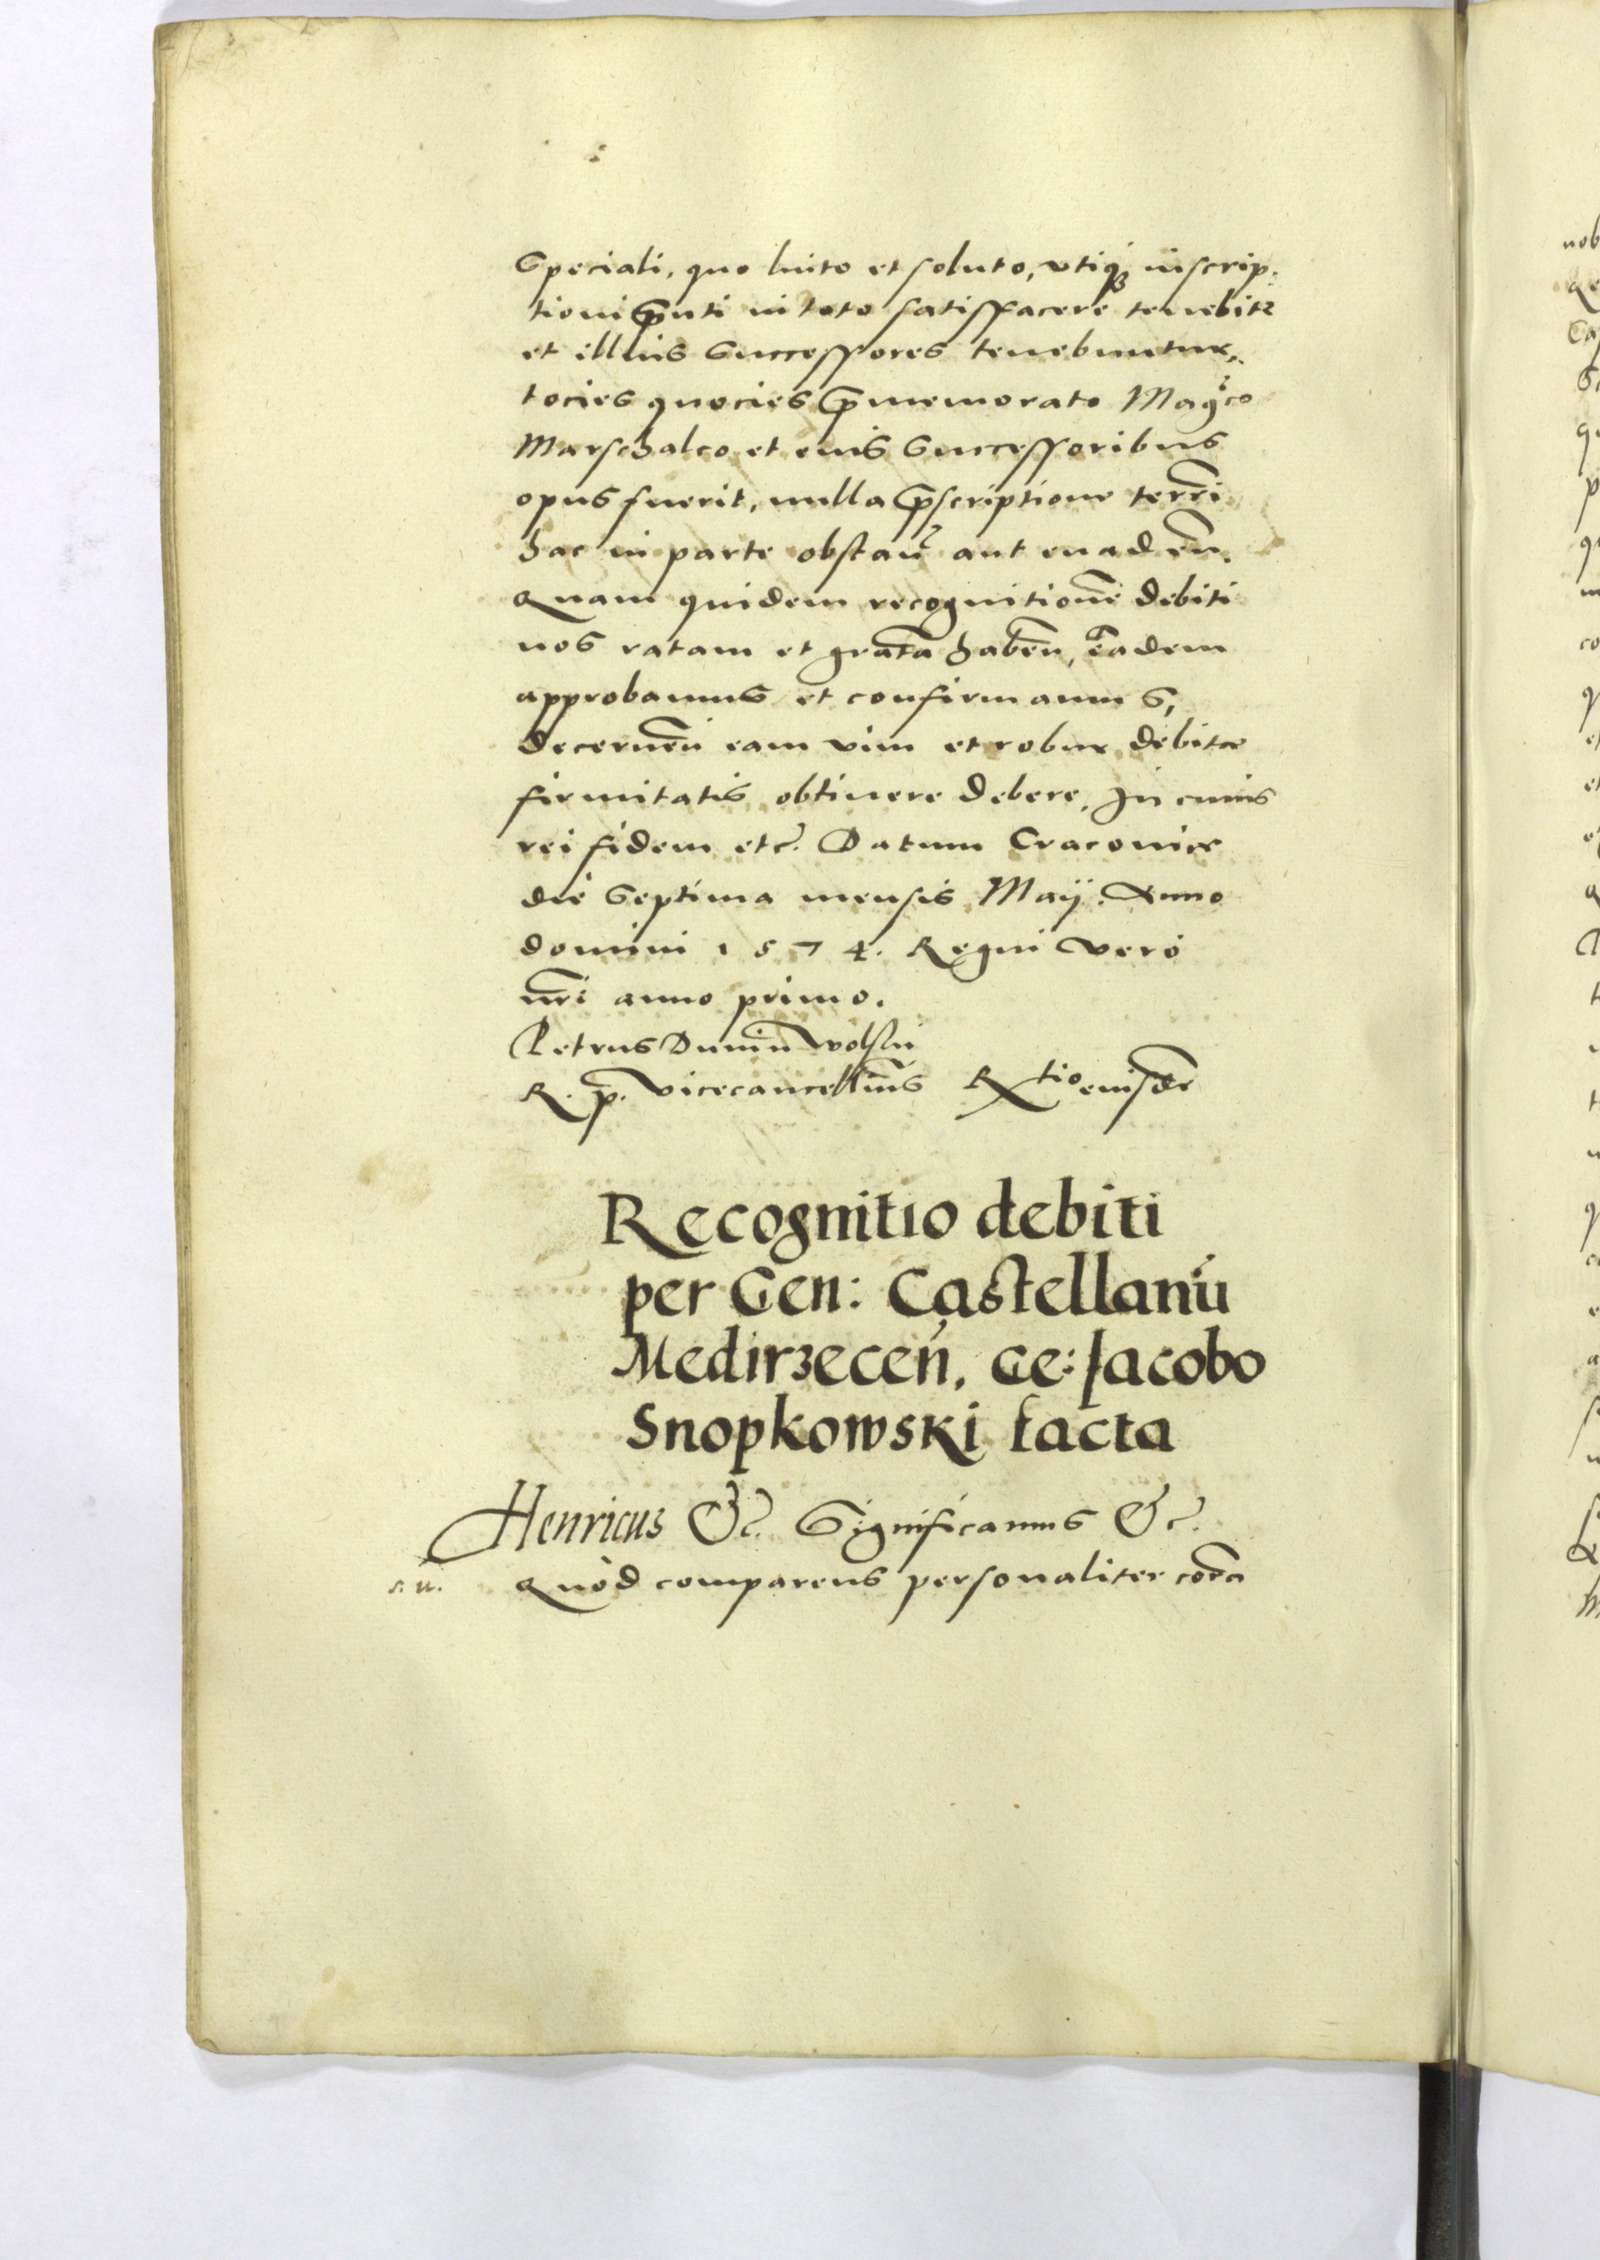 Speciali, quo luito et soluto, vtiqȝ inscrip-
tioni p̄nti in toto satisfacere tenebitr
et illius Successores tenebuntur,
tocies quocies p̄memorato Mag͡co
Marschalco et eius Successoribus
opus fuerit, nulla p̄scriptione terr̄i
hac in parte obstan̄ aut euaden̄.
Quam quidem recognitionē debiti
nos ratam et gratā haben̄, eādem
approbamus et confirmamus,
decernen̄ eam vim et robur debitæ
firmitatis obtinere debere. In cuius
rei fidem etc. Datum Cracouiæ
die Septima mensis Maij. Anno
domini 1574. Regni vero
nr̄i anno primo.
Petrus Dunin Wolski
R. p. vicecancellarius Rtio eiusdē
Recognitio debiti
per Gen: Castellanū
Medirzecen̄, Ge: Jacobo
Snopkowski facta
Henricus &c. Significamus &c.
Quòd comparens personaliter corā